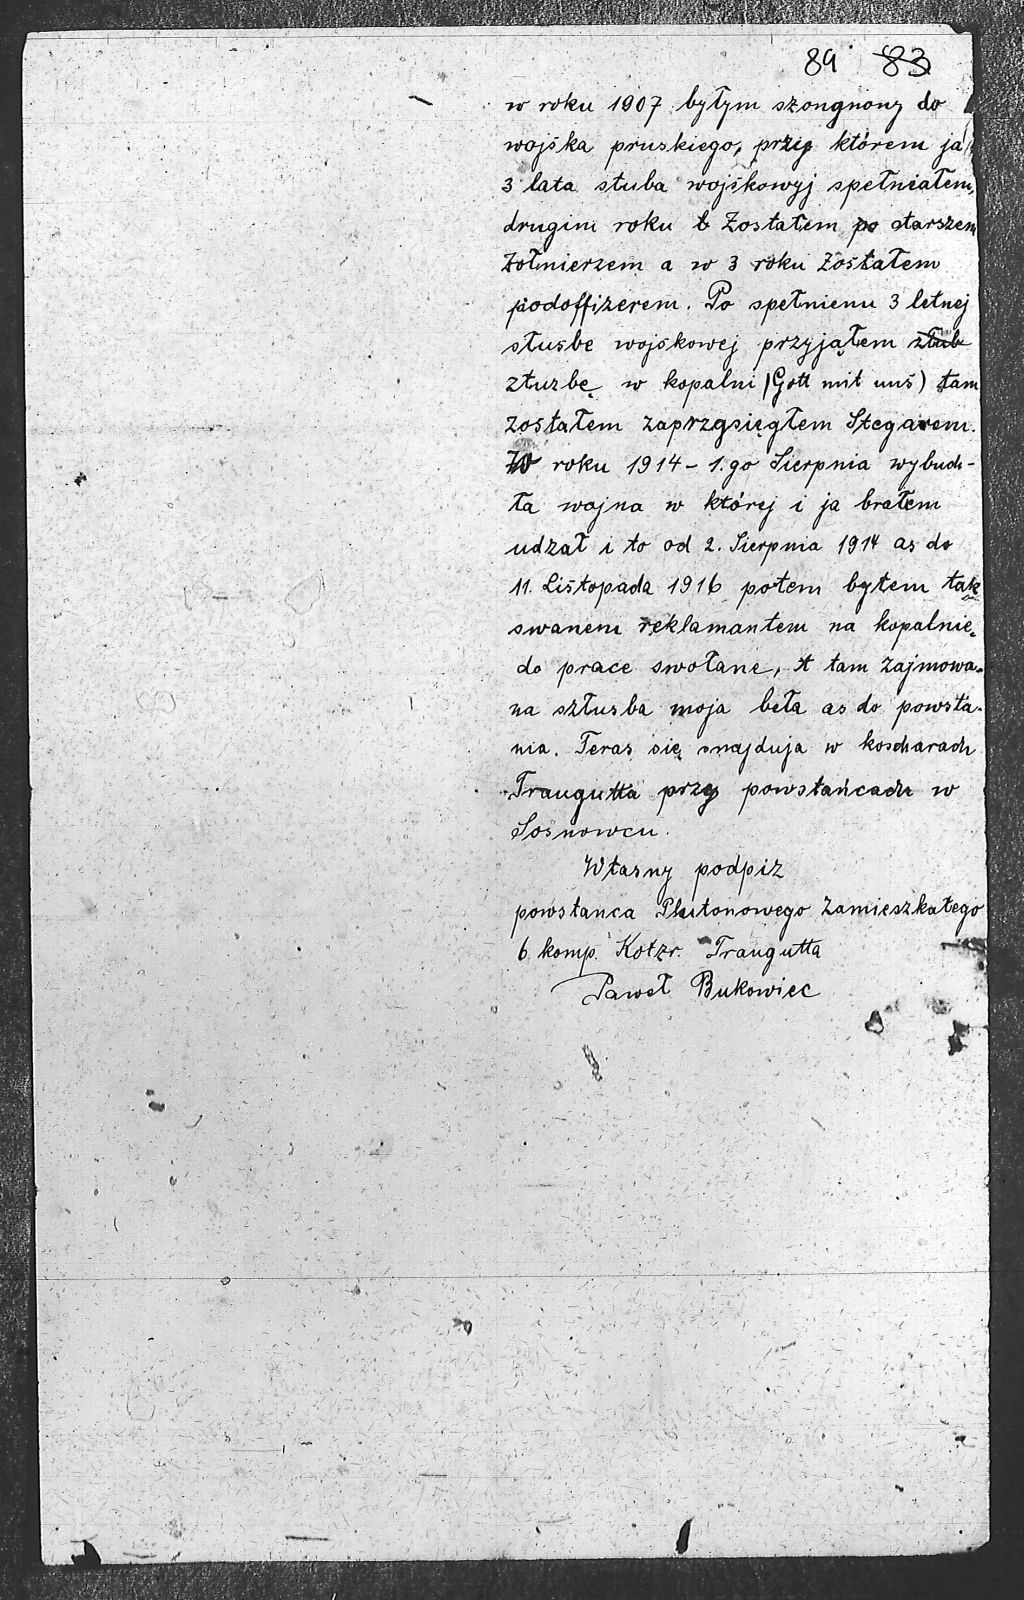 89 83
w roku 1907 byłym szongnony do
wojska pruskiego, przy którem ja
3 lata stuba wojskowyj spełniałem,
drugim roku Zostałem po starszem
Żołnierzem a w 3 roku Zostałem
podoffizerem. Po spełnienu 3 letnej
stusbe wojskowej przyjąłem złub
zturbę w kopalni (Gott mit uns) tam
zostałem zaprzgsięgłem Stegarem.
W roku 1914 – 1.go Sierpnia wybuch-
ła wojna w której i ja brałem
udzał i to od 2. Sierpnia 1914 as do
11. Listopada 1916 potem byłem tak
swanem reklamantem na kopalnię
do prace swołane, A tam zajmowa-
na szłusba moja beła as do powsta-
nia. Teras się snajduja w koscharach
Traugutta przy powstańcach w
Sosnowcu.
Własny podpiz
powstanca Plutonowego Zamieszkałego
6 komp. Kotzr. Traugutta
Paweł Bukowiec